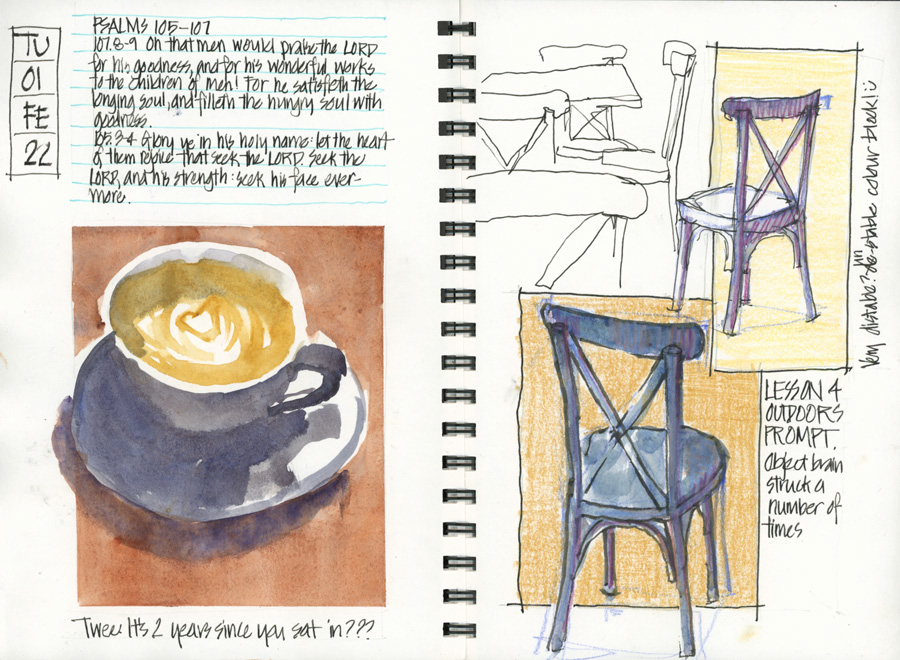 TU
01
FE
22
PSALMS 105-107
107.8-9 Oh that men would praise the LORD
for his goodness, and for his wonderful works
to the children of men! For he satisfieth the
longing soul, and filleth the hungry soul with
goodness.
105.3-4 Glory ye in his holy name: let the heart
of them rejoice that seek the LORD. Seek the
LORD, and his strength: seek his face ever-
more.
Twee: It's 2 years since you sat in???
un
Very distable? de-stable colour bleck! :)
LESSON 4
OUTDOORS
PROMPT.
Object brain
struck a
number of
times